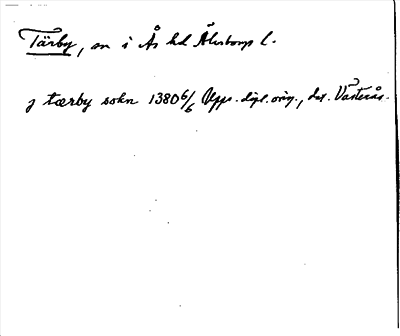 Tärby, sn i Ås hd Älvsborgs l.
j tærby sokn 1380 6/6 Upps. dipl. orig., dat. Västerås.